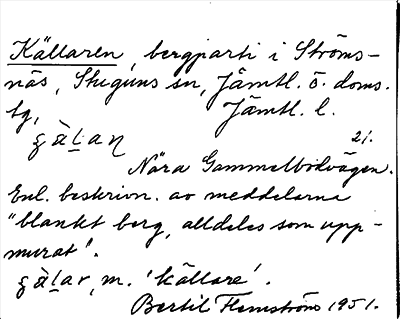 Källaren, bergparti i Ströms-
näs, Stuguns sn, Jämtl. ö. doms.
tg, Jämtl. l.
21.
Nära Gammelbodvägen.
Enl. beskrivn. av meddelarna
"blankt berg, alldeles som upp-
murat".
m. 'källare'.
Bertil Flemström 1951.